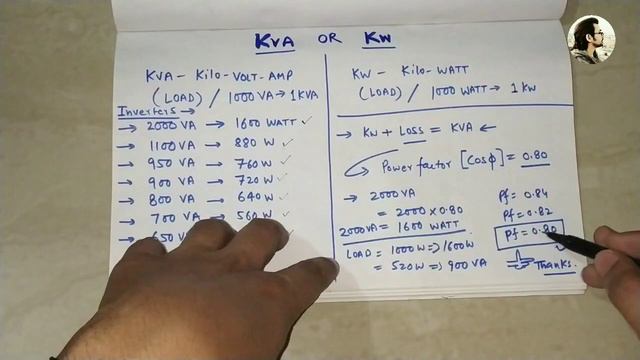 KVA OR KW
KVA - KILO-VOLT-AMP
(LOAD) / 1000 VA → 1KVA
Inverters →
→ 2000 VA → 1600 WATT ✓
→ 1100 VA → 880 W ✓
→ 950 VA → 760 W ✓
→ 900 VA → 720 W ✓
→ 800 VA → 640 W ✓
→ 700 VA → 560 W
→ 650 VA
KW - KILO-WATT
(LOAD) / 1000 WATT → 1 KW
→ KW + LOSS = KVA ←
Power factor [Cosϕ] = 0.80
→ 2000 VA
= 2000 × 0.80
2000VA = 1600 WATT
LOAD = 1000W ⇒ 1600W
= 520W ⇒ 900 VA
Pf = 0.84
Pf = 0.82
Pf = 0.80
Thanks.